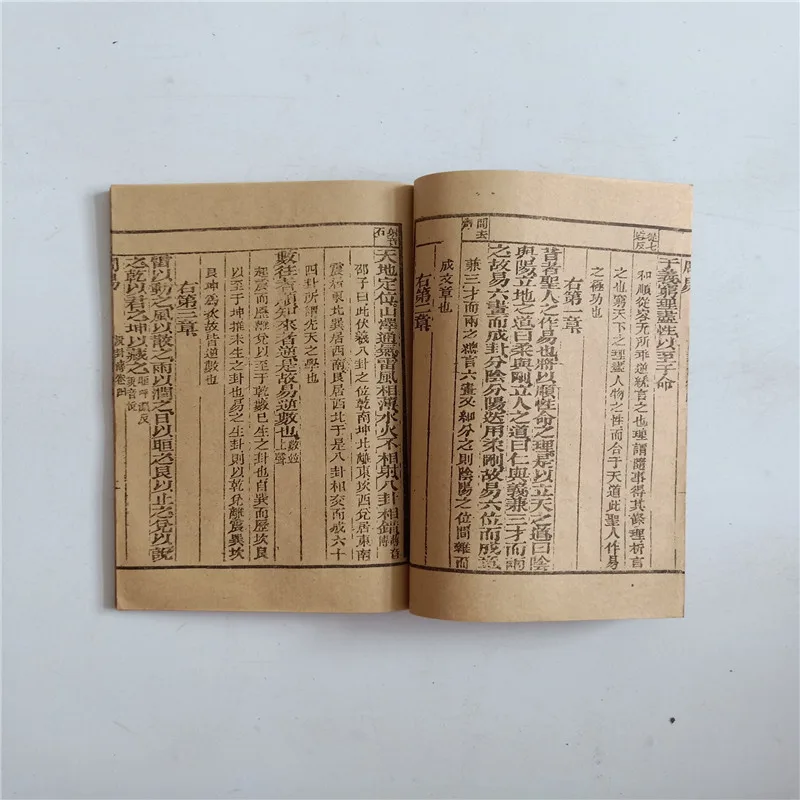 周易
從七
容反
于義窮理盡性以至于命
和順從容无所乖逆統言之也理謂隨事得其條理析言
之也窮天下之理盡人物之性而合于天道此聖人作易
之極功也
右第一章
昔者聖人之作易也將以順性命之理是以立天之道曰陰
與陽立地之道曰柔與剛立人之道曰仁與義兼三才而兩
之故易六畫而成卦分陰分陽迭用柔剛故易六位而成章
間去
聲
兼三才而兩之總言六畫又細分之則陰陽之位間雜而
成文章也
右第二章
射音
石
天地定位山澤通氣雷風相薄水火不相射八卦相錯
邵子曰此伏羲八卦之位乾南坤北離東坎西兌居東南
震居東北巽居西南艮居西北于是八卦相交而成六十
四卦所謂先天之學也
數往者順知來者逆是故易逆數也數並上聲
起震而歷離兌以至于乾數已生之卦也自巽而歷坎艮
以至于坤推未生之卦也易之生卦則以乾兌離震巽坎
艮坤爲次故皆逆數也
右第三章
雷以動之風以散之雨以潤之日以烜之艮以止之兌以說
之乾以君之坤以藏之說音悅
周易
說卦傳卷四